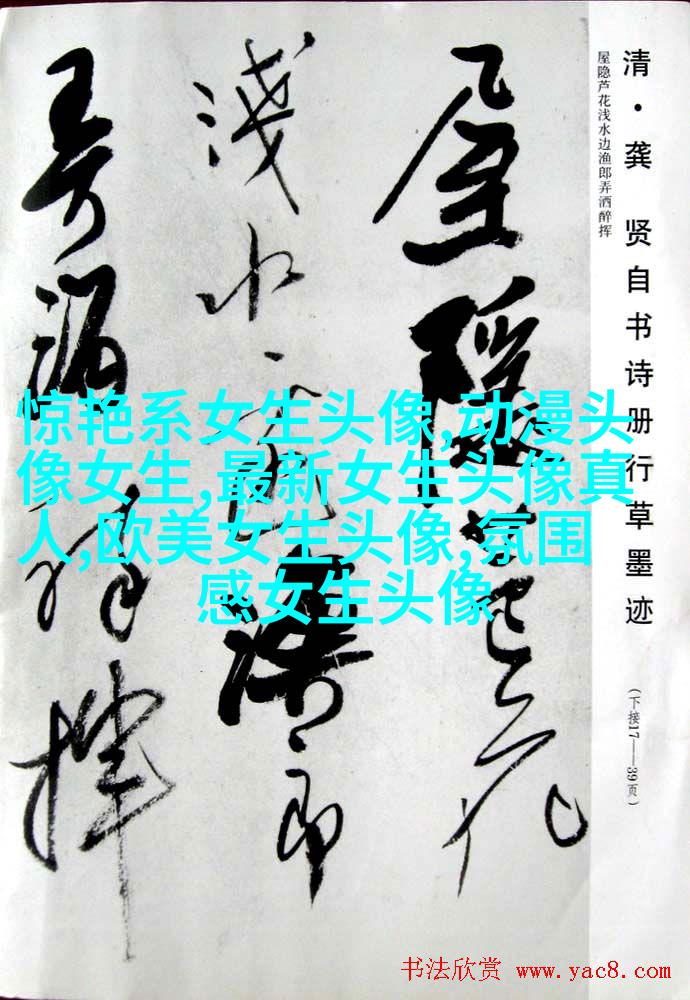 清·龚 贤自书诗册行草墨迹
屋隐芦花浅水边渔郎弄洒醉挥
(下接17——39页)
屋隐芦花
淺水边漁郎
弄洒醉挥
惊艳系女生头像,动漫头
像女生,最新女生头像真
人,欧美女生头像,氛围
感女生头像
书法欣赏 www.yac8.com